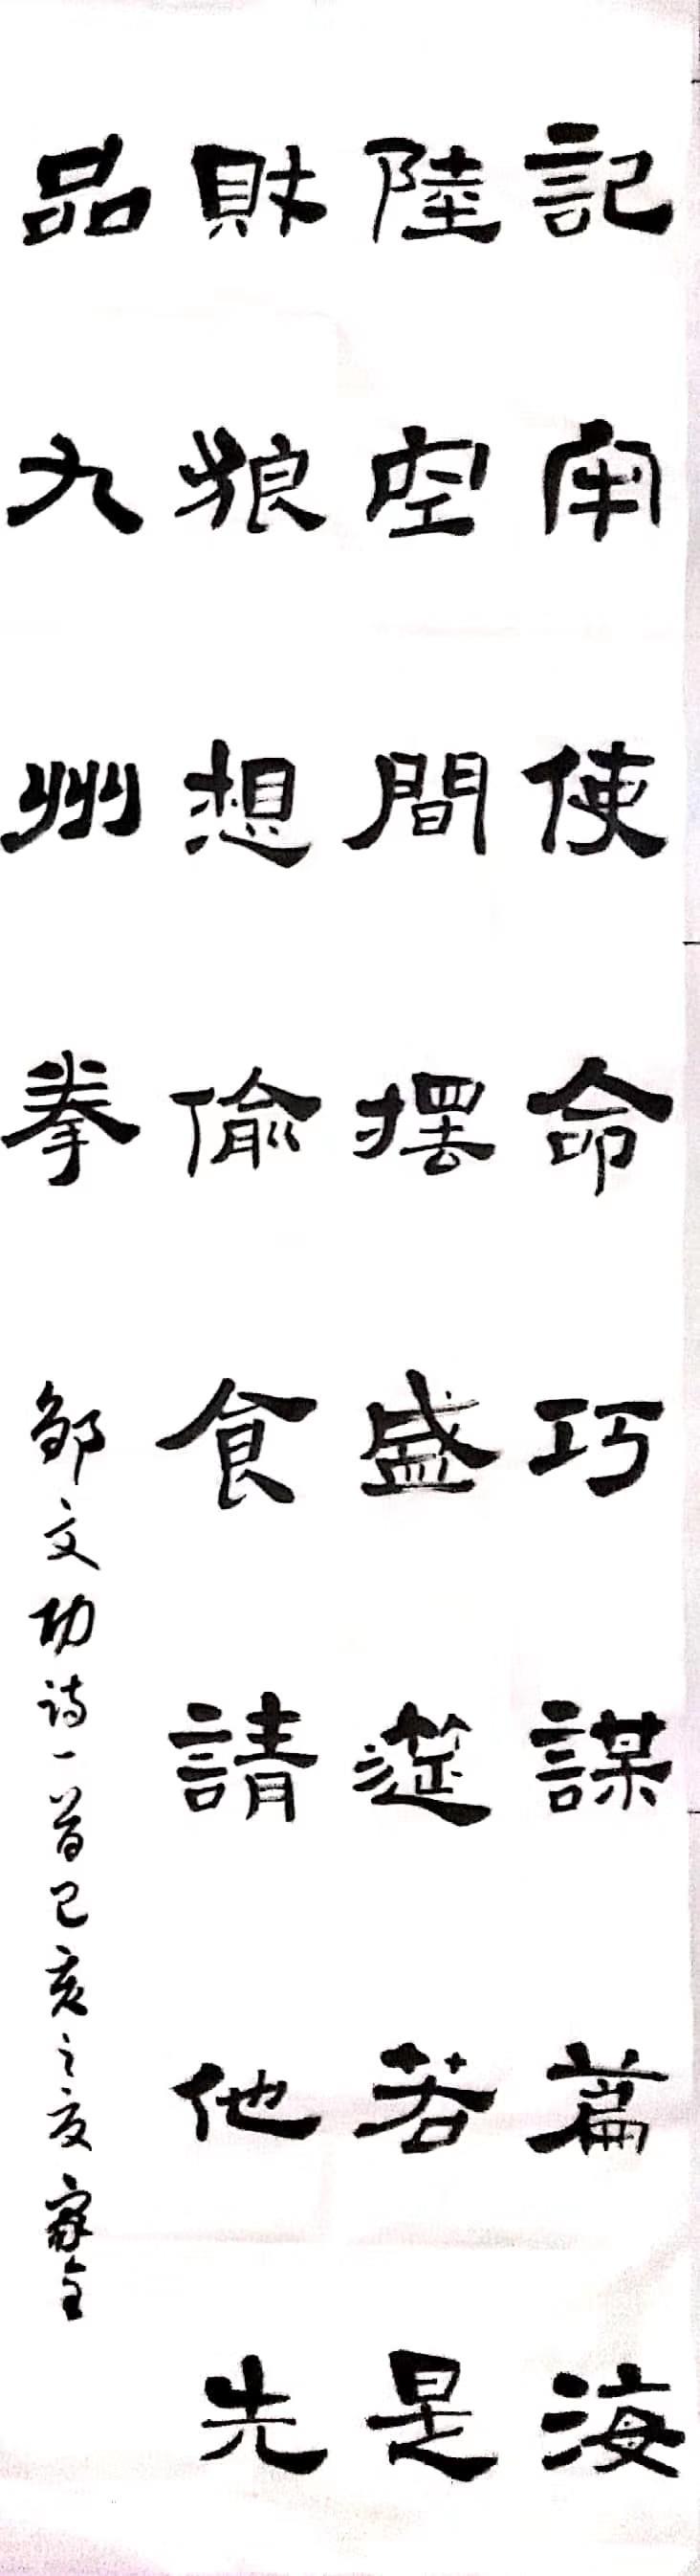 記牢使命巧謀篇海
陸空間擺盛筵若是
財狼想偷食請他先
品九州拳
邹文功诗一首己亥之夏家全